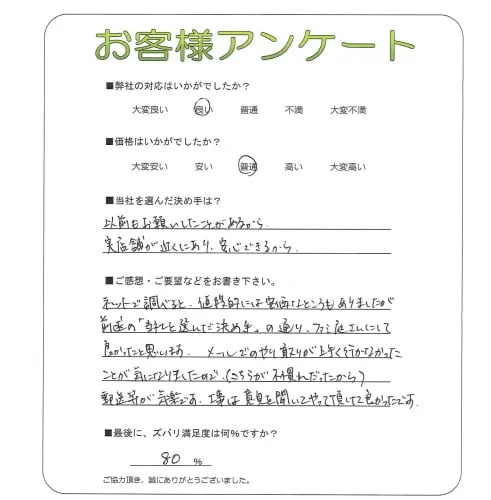 お客様アンケート
■弊社の対応はいかがでしたか?
大変良い 良い 普通 不満 大変不満
■価格はいかがでしたか?
大変安い 安い 普通 高い 大変高い
■当社を選んだ決め手は?
以前もお願いしたことがあるから
実店舗が近くにあり、安心できるから。
■ご感想・ご要望などをお書き下さい。
ネットで調べると、値段的には安価なところもありましたが
前述の「当社を選んだ決め手」の通り、ファミ庭さんにして
良かったと思います。メールでのやり取りが上手く行かなかった
ことが気になりましたので、(こちらが不慣れだったから)
郵送等が気楽です。工事は意見を聞いてやって頂けて良かったです。
■最後に、ズバリ満足度は何%ですか?
80 %
ご協力頂き、誠にありがとうございました。